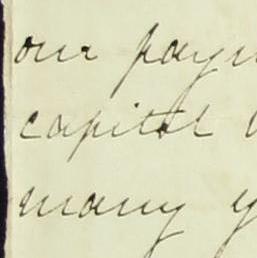 our paym
capital
many y